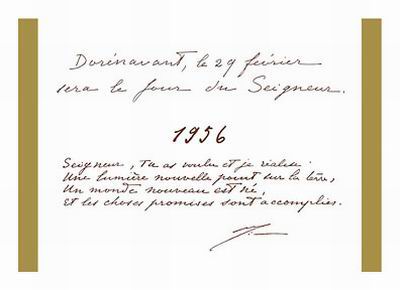 Dorénavant, le 29 février
sera le Jour du Seigneur.
1956
Seigneur, Tu as voulu et je réalise:
Une lumière nouvelle point sur la terre,
Un monde nouveau est né,
Et les choses promises sont accomplies.